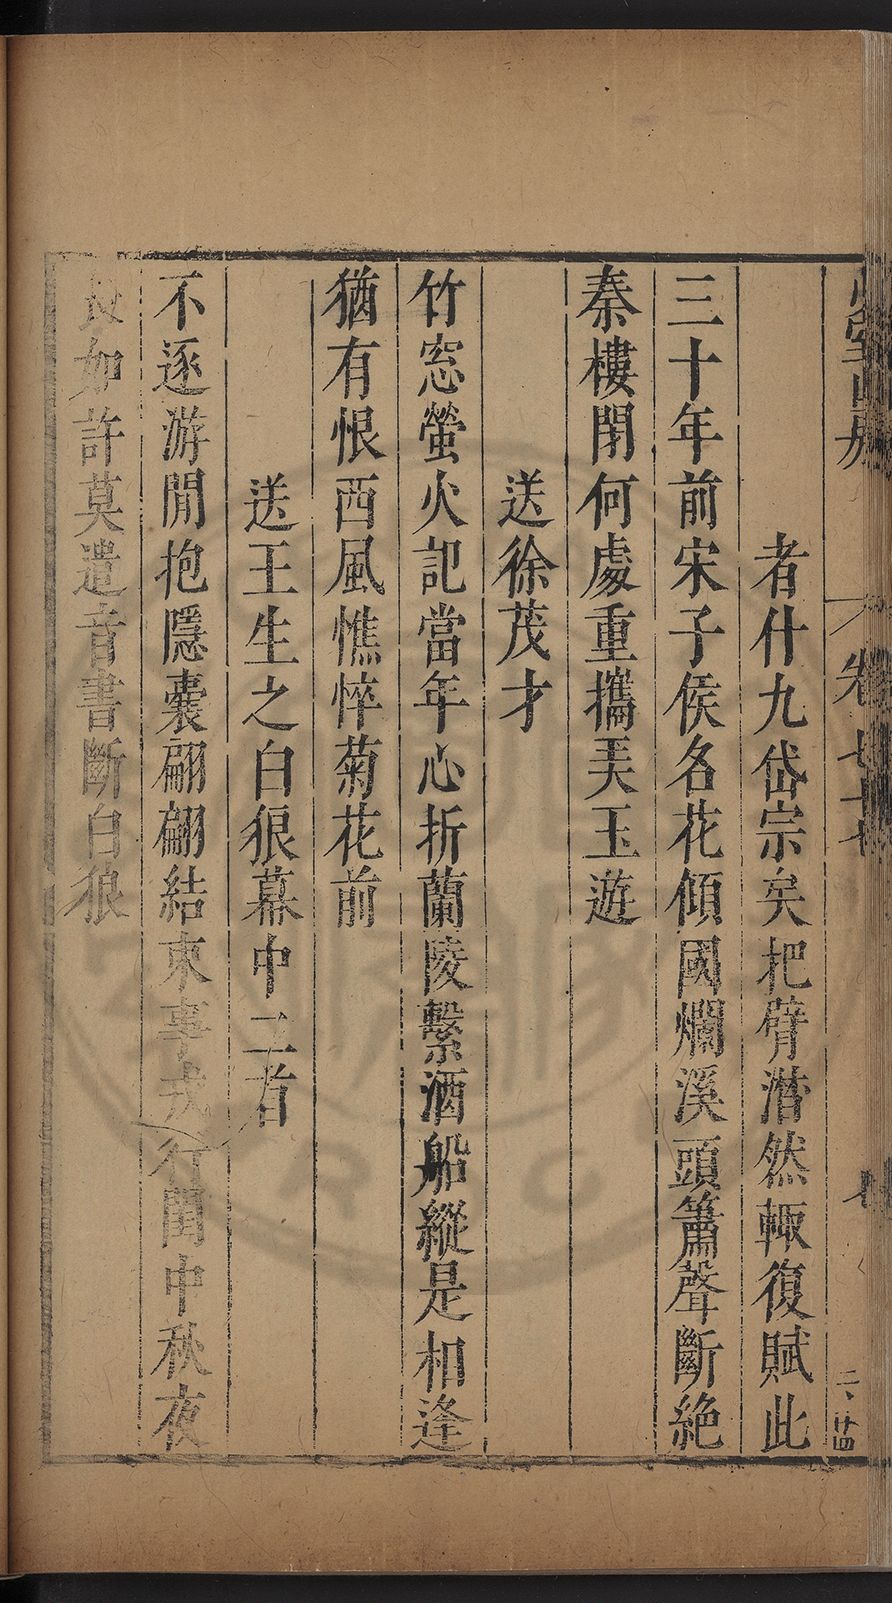 卷七十
者什九岱宗矣把臂潸然輙復賦此
三十年前宋子侯名花傾國爛溪頭簫聲斷絶
秦樓閉何處重攜美玉遊
送徐茂才
竹窓螢火記當年心折蘭陵繫酒船縱是相逢
猶有恨西風憔悴菊花前
送王生之白狼幕中二首
不逐游閒抱隱囊翩翩結束事戎行閨中秋夜
長如許莫遣音書斷白狼